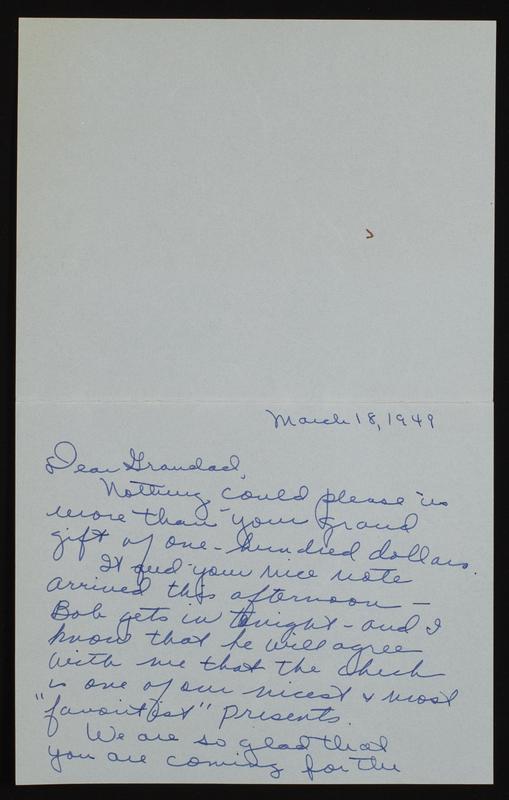 March 18, 1949
Dear Grandad,
Nothing could please us
more than your grand
gift of one-hundred dollars.
It and your nice note
arrived this afternoon -
Bob gets in tonight - and I
know that he will agree
with me that the check
is one of our nicest & most
"favoritist" presents.
We are so glad that
you are coming for the